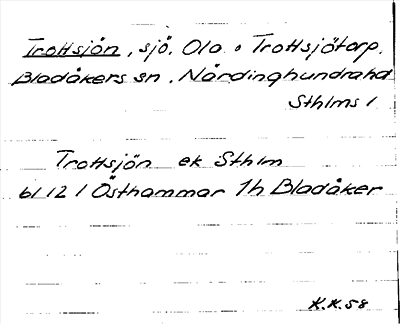 Trottsjön, sjö. Ola o Trottsjötorp.
Bladåkers sn. Närdinghundra hd
Sthlms l
Trottsjön ek Sthlm
bl 12 l Östhammar 1h Bladåker
K.K.58